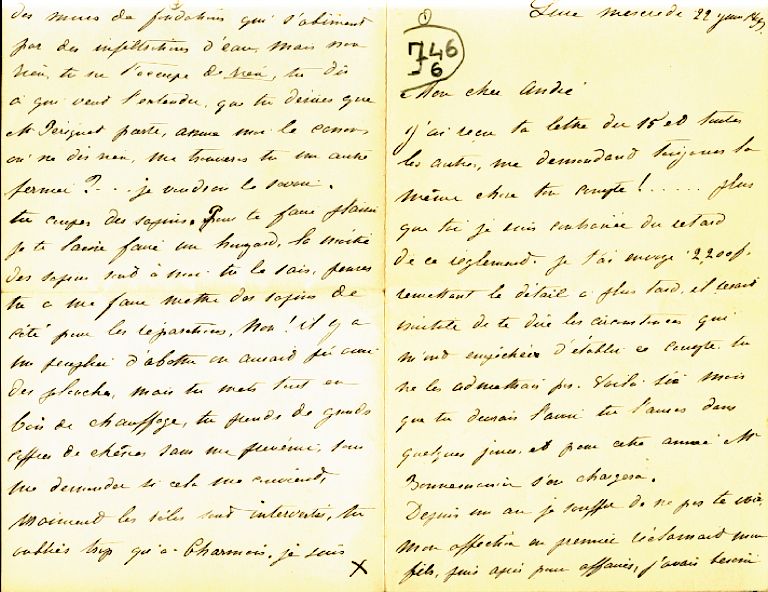 Lure mercredi 22
① 746
6
Mon cher André
j'ai reçu ta lettre du 15 et toutes
les autres, me demandant toujours la
même chose ton compte ! ..... plus
que toi je suis contrariée du retard
de ce règlement. je t'ai envoyé 2,200 f.
remettant le détail à plus tard, il serait
inutile de te dire les circonstances qui
m'ont empêchée d'établir ce compte tu
ne les admettrais pas. Voilà six mois
que tu devrais l'avoir tu l'auras dans
quelques jours, et pour cette année Mr
Bonnemaisin s'en chargera.
Depuis un an je souffre de ne pas te voir,
mon affection en premier réclamait mon
fils, puis après pour affaires, j'avais besoin
des murs de fondations qui s'abiment
par des infiltrations d'eau, mais non
rien, tu ne t'occupe de rien, tu dis
à qui veut l'entendre, que tu désires que
Mr parte, comme moi le
ou ne dis rien, me trouveras tu un autre
fermier ? - - . je voudrais le savoir.
tu coupes des sapins. Pour te faire plaisir
je te laisse faire un hangard, la moitié
des sapins sont à moi tu le sais, penses
tu à me faire mettre des sapins de
côté pour les réparations, Non ! il y a
un peuplier d'abattu on aurait pu avoir
des planches, mais tu mets tout en
bois de chauffage, tu prends de grands
de chênes sans me prévenir, sans
me demander si cela me convient,
vraiment les rôles sont intervertis, tu
oublies trop qu'à Charmois, je suis
X